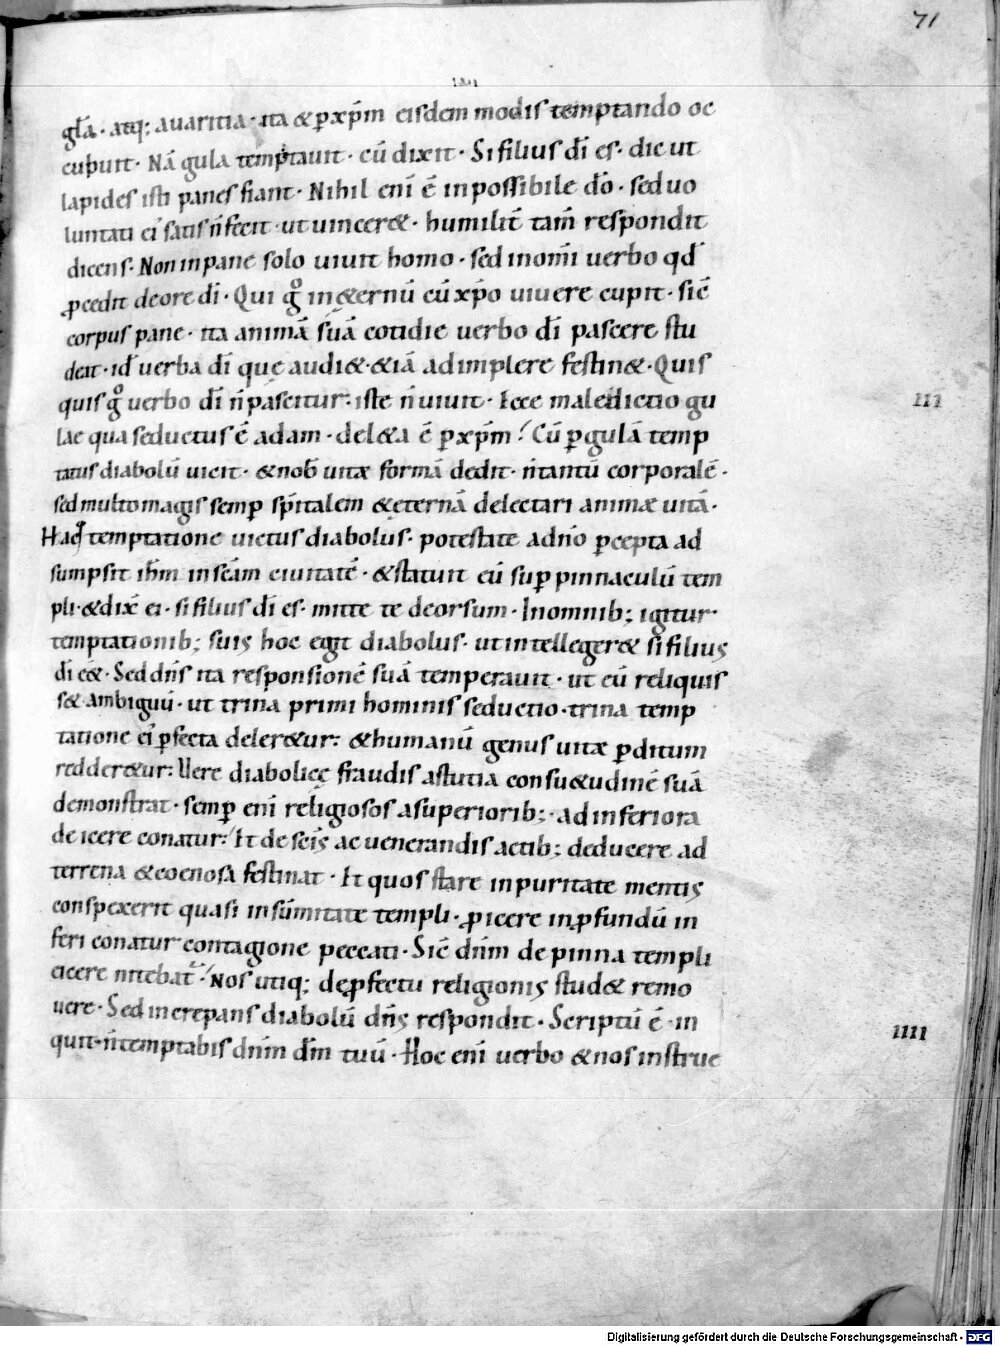 71
gła · atq; auaritia · ita & p xp̄m eisdem modis temptando oc
cubuit · Nā gula temptauit · cū dixit · Si filius dī es · dic ut
lapides isti panes fiant · Nihil enī ē inpossibile dō · sed uo
luntati ei satis n̄ fecit · ut uincer& · humilit̄ tam̄ respondit
dicens · Non in pane solo uiuit homo · sed in om̄i uerbo qd̄
ꝓcedit de ore dī · Qui gͦ in ęternū cū xp̄o uiuere cupit · sic̄
corpus pane · ita animā suā cotidie uerbo dī pascere stu
deat · id ̄ uerba dī que audi& · &iā adimplere festin& · Quis
quis gͦ uerbo dī n̄ pascitur · iste n̄ uiuit · Ecce maledictio gu
lae qua seductus ē adam · del&a ē p xp̄m · Cū p gulā temp
tatus diabolū uicit · & nob̄ uitæ formā dedit · n̄ tantū corporalē ·
sed multo magis semp sp̄italem & ęternā delectari animæ uitā ·
Hac temptatione uictus diabolus · potestate a dn̄o pcepta ad
sumpsit ih̄m in sc̄am ciuitatē · & statuit eū sup pinnaculū tem
pli · & dix̄ ei · si filius dī es · mitte te deorsum · In omnib; igitur ·
temptationib; suis hoc egit diabolus · ut intelleger& si filius
dī ee& · Sed dn̄s ita responsionē suā temperauit · ut eū reliquis
s& ambiguū · ut trina primi hominis seductio · trina temp
tatione ei pfecta deler&ur · & humanū genus uitæ pditum
redder&ur · Vere diabolicę fraudis astutia consu&udinē suā
demonstrat · semp enī religiosos a superiorib; · ad inferiora
deicere conatur · Et de sc̄is ac uenerandis actib; deducere ad
terrena & coenosa festinat · Et quos stare in puritate mentis
conspexerit quasi in sūmitate templi · ꝓicere in pfundū in
feri conatur contagione peccati · Sic̄ dn̄m de pinna templi
eicere nitebat̄ · Nos utiq; de ꝓfectu religionis stud& remo
uere · Sed increpans diabolū dn̄s respondit · Scriptū ē in
quit · n̄ temptabis dn̄m dm̄ tuū · Hoc enī uerbo & nos instrue
III
IIII
Digitalisierung gefördert durch die Deutsche Forschungsgemeinschaft - DFG